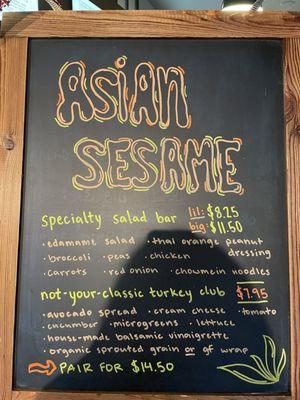 ASIAN
SESAME
specialty salad bar lil: $8.25
big: $11.50
· edamame salad · thai orange peanut dressing
· broccoli · peas · chicken
· carrots · red onion · chowmein noodles
not-your-classic turkey club $7.95
· avocado spread · cream cheese · tomato
· cucumber · microgreens · lettuce
· house-made balsamic vinaigrette
· organic sprouted grain or gf wrap
PAIR FOR $14.50